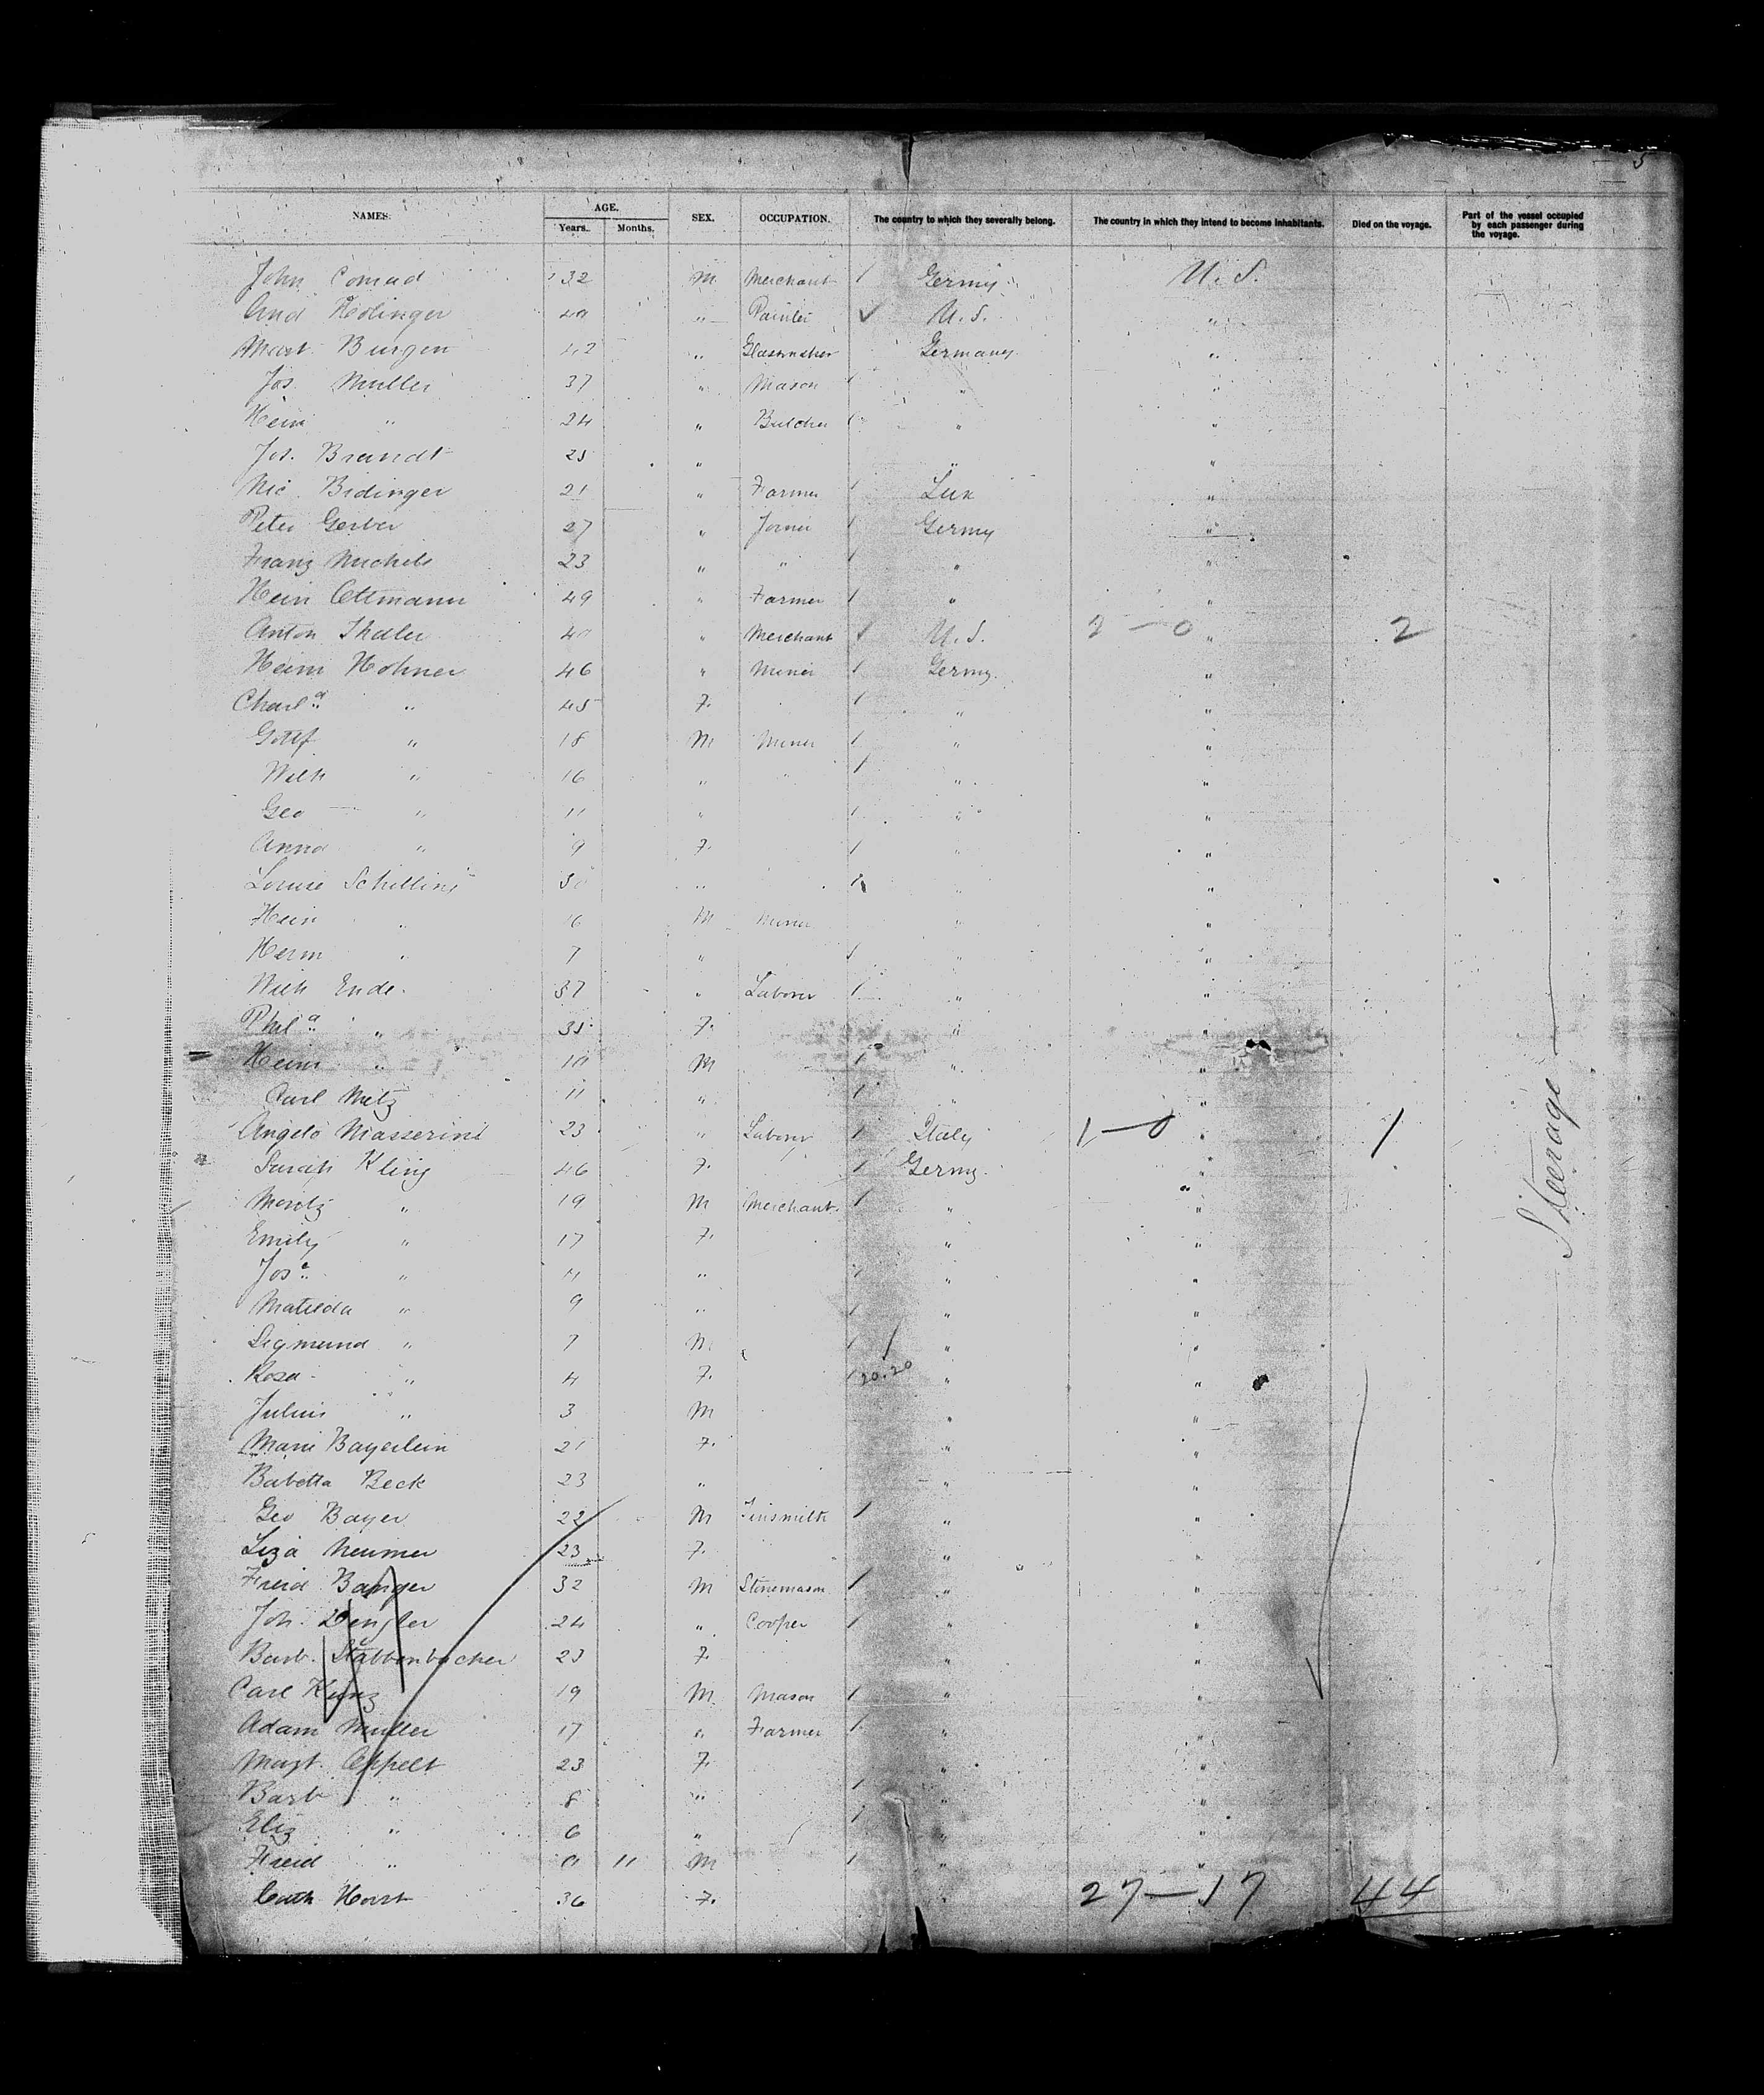 5
NAMES. AGE. SEX. OCCUPATION. The country to which they severally belong. The country in which they intend to become inhabitants. Died on the voyage. Part of the vessel occupied by each passenger during the voyage.
Years. Months.
John Conrad 32 M Merchant Germy. U.S.
And Hedinger " Painter U.S. "
Mart. Burgen 42 " Germany "
Jos. Muller 37 " Mason " "
Hein " 24 " Butcher " "
Jos. Brandt 25 " " "
Nic. Bidinger 21 " Farmer Lux "
Peter Gerber 27 " Joiner Germy "
Franz Michels 23 " " " "
Hein Ettmann 49 " Farmer " "
Anton Thaler " Merchant U.S. 2 — 0 " 2
Heinr Hohner 46 " Miner Germy. "
Charl.a " 45 F. " "
Gottf " 18 M Miner " "
Wilh " 16 " " " "
Geo " 11 " " "
Anna " 9 F. " "
Louise Schilling " " "
Hein " 16 M Miner " "
Herm " 7 " " "
Wilh Ende. 37 " Laborer " "
Phil.a " 35 F. " "
Heinr " M " "
Carl Metz 11 " " "
Angelo Masserini 23 " Laborer Italy 1 — 0 " 1
Sarah Kling 46 F. Germy. "
Moritz " 19 M Merchant. " "
Emily " 17 F. " "
Jos.e " 11 " " "
Matilda " 9 " " "
Sigmund " 7 M " "
Rosa " 4 F. 20.20 " "
Julius " 3 M " "
Marie Bayerlein 21 F. " "
Babetta Beck 23 " " "
Geo Bayer 22 M Tinsmith " "
Liza Neumer 23 F. " "
Fried Banger 32 M Stonemason " "
Joh. Dengler 24 " Cooper " "
Barb. Stabbenbacher 23 F. " "
Carl Kunz 19 M. Mason " "
Adam Muller 17 " Farmer " "
Magt. Appelt 23 F. " "
Barb " 8 " " "
Eliz " 6 " " "
Fried " 0 11 M " "
Cath Horst 36 F. " 27—17 44
Steerage